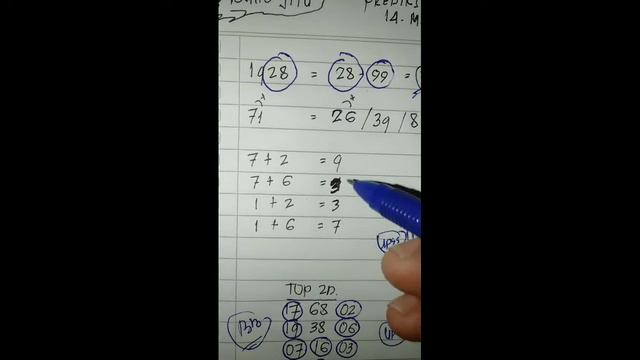 PREDIKSI
14. M
1928 = 28 - 99 =
71 = 26 / 39 / 8
7 + 2 = 9
7 + 6 = 3
1 + 2 = 3
1 + 6 = 7
TOP 2D.
17 68 02
BB 19 38 06
07 16 03